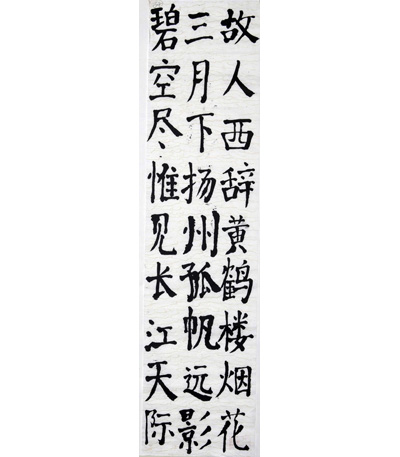 故人西辞黄鹤楼烟花
三月下扬州孤帆远影
碧空尽惟见长江天际